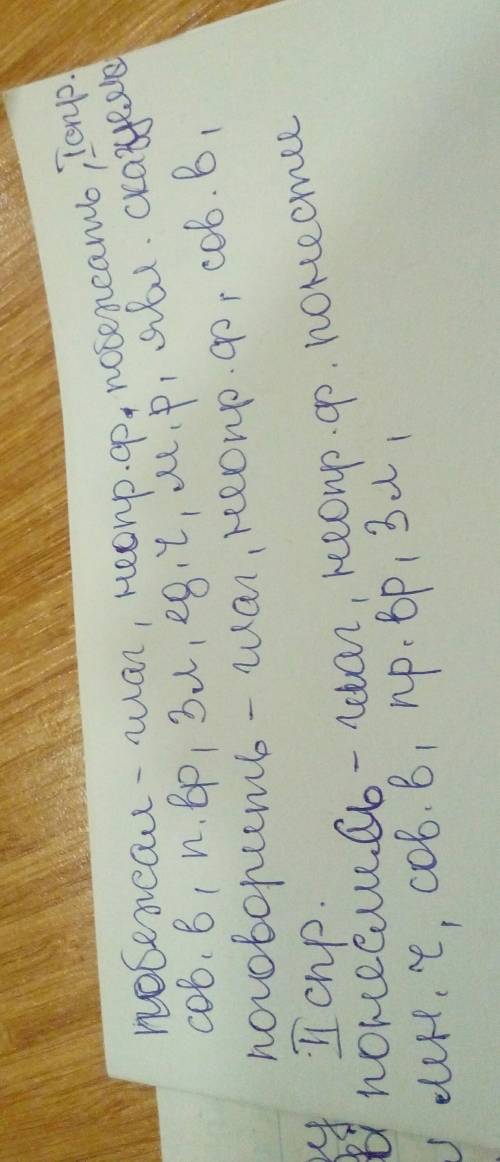 побежал - глаг, неопр. ф, побежать, I спр.
сов. в, п. вр, 3 л, ед. ч, м. р, явл. сказуем
поговорить - глаг, неопр. ф, сов. в,
II спр.
понеслись - глаг, неопр. ф. понести
мн. ч, сов. в, пр. вр, 3 л,